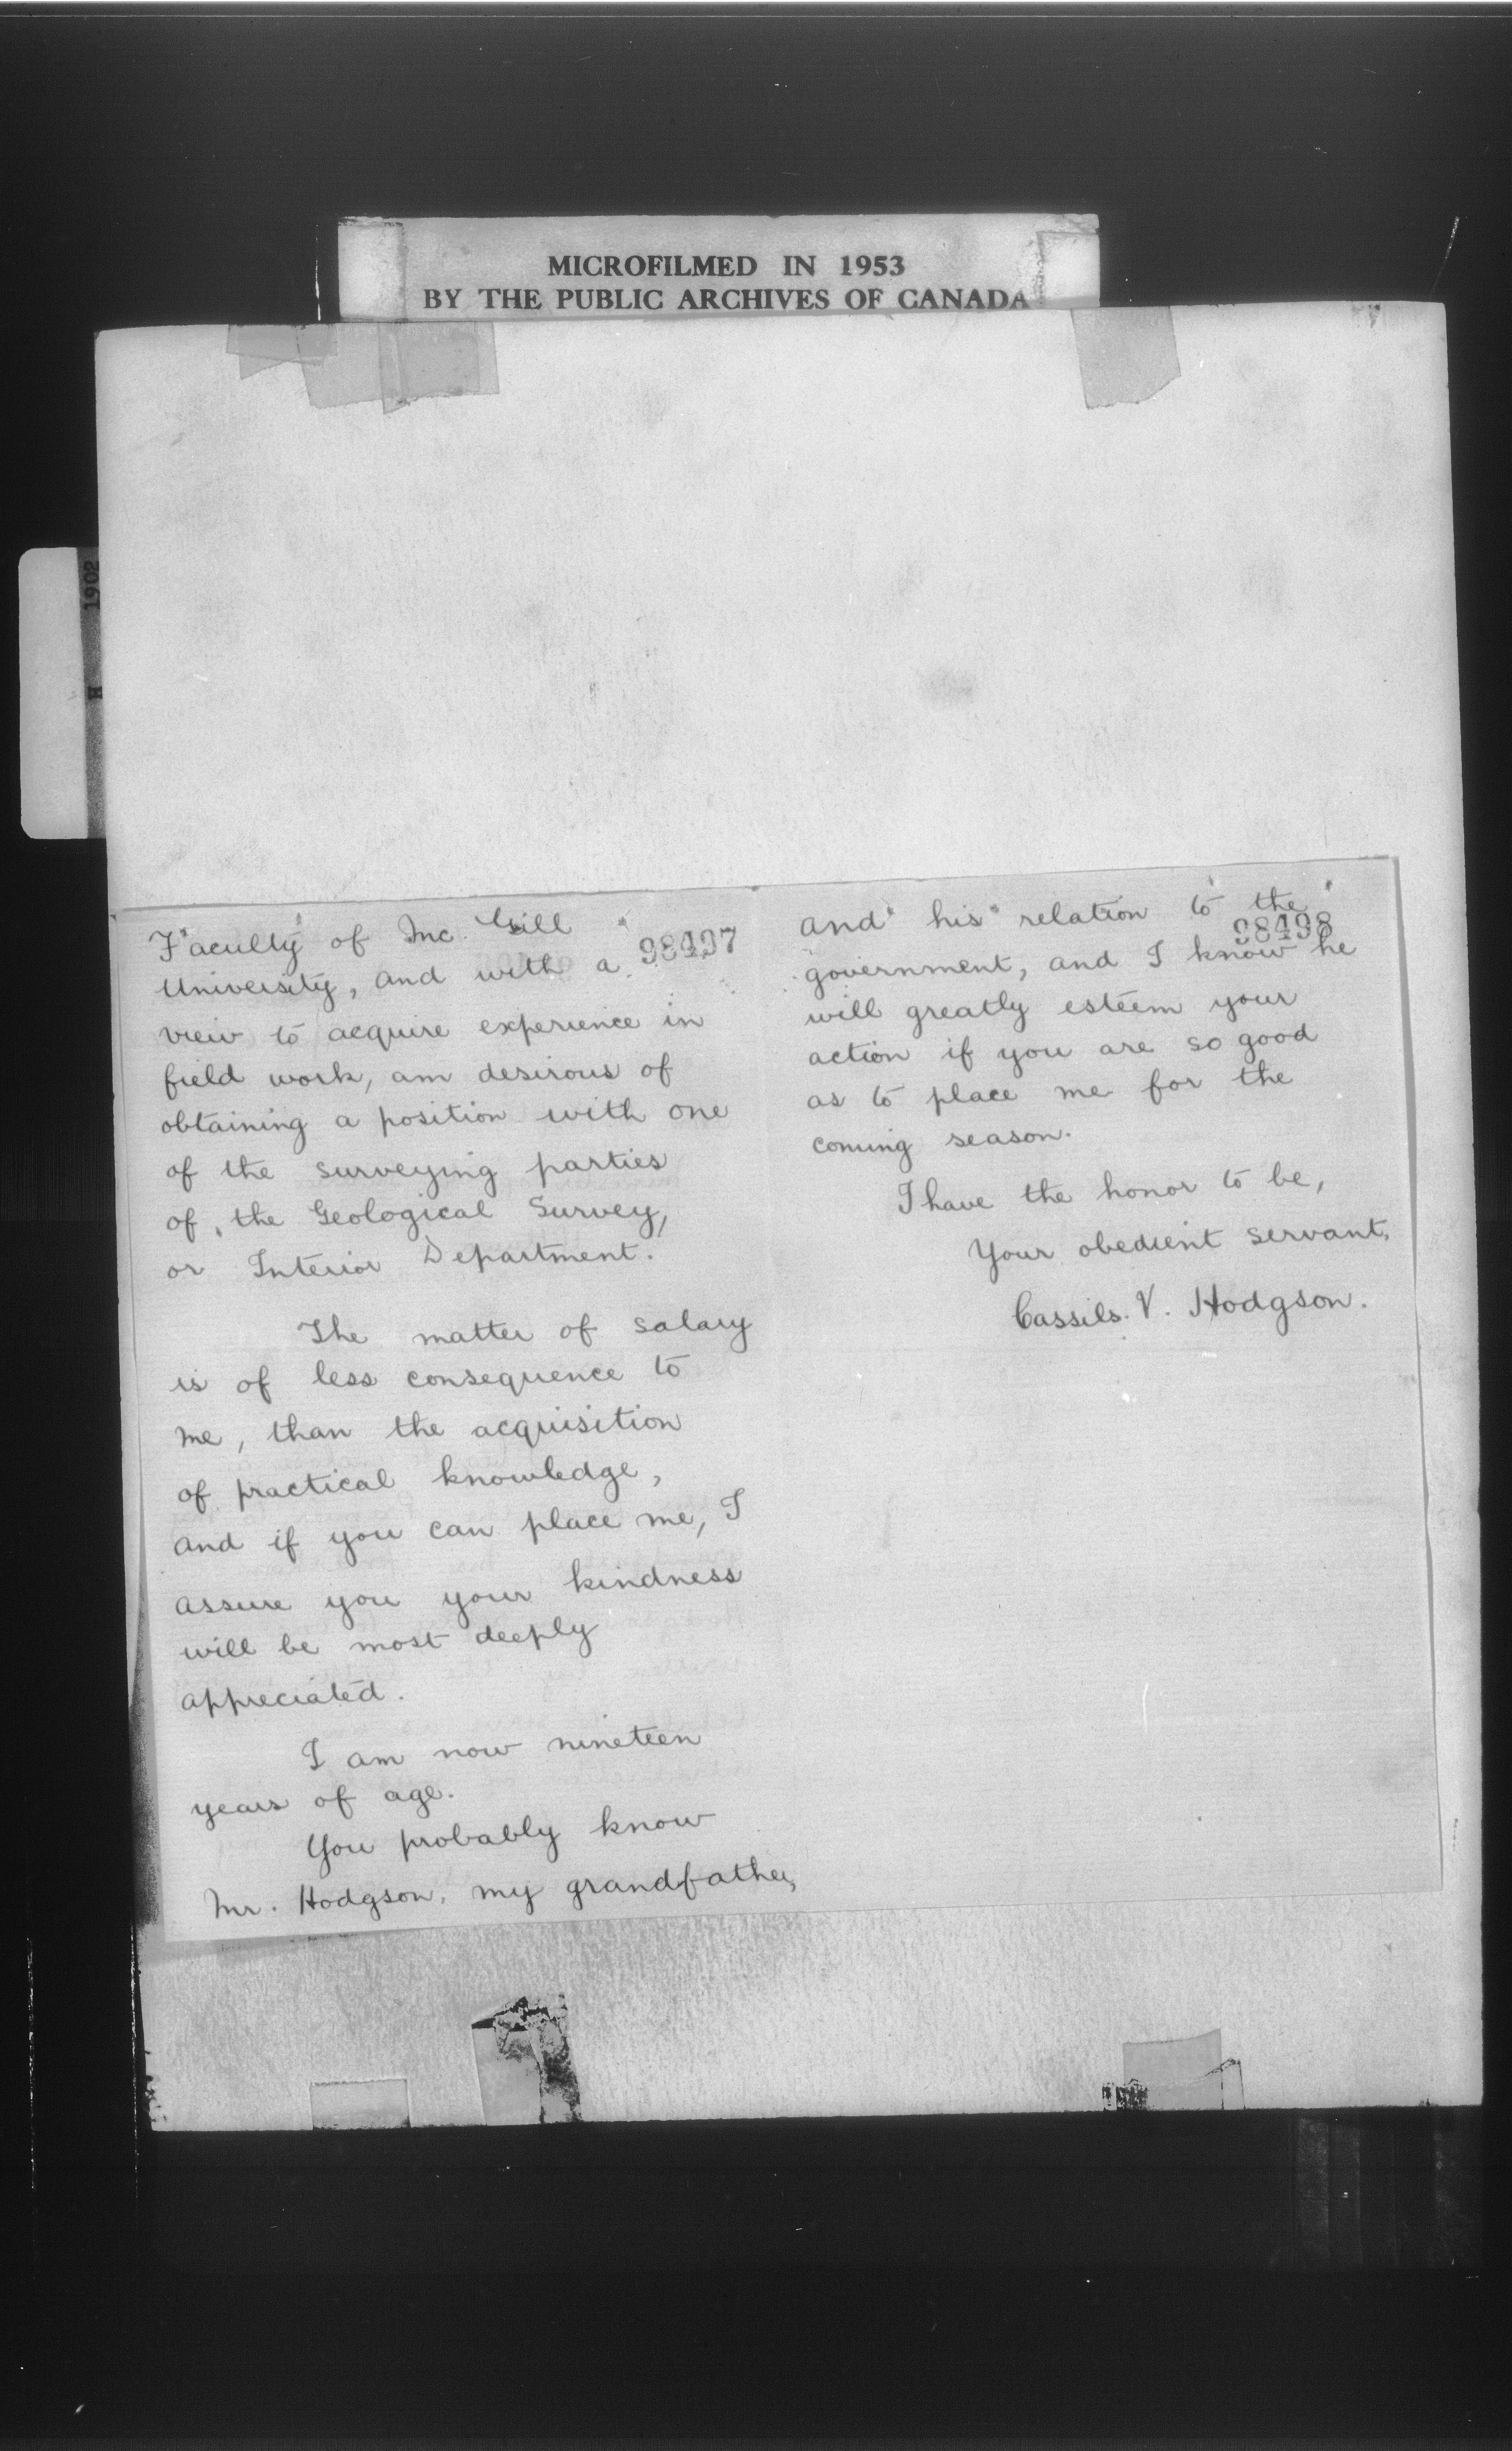 MICROFILMED IN 1953
BY THE PUBLIC ARCHIVES OF CANADA
1902
H
98497
Faculty of Mc. Gill
University, and with a
view to acquire experience in
field work, am desirous of
obtaining a position with one
of the surveying parties
of, the Geological Survey,
or Interior Department.
The matter of salary
is of less consequence to
me, than the acquisition
of practical knowledge,
and if you can place me, I
assure you your kindness
will be most deeply
appreciated.
I am now nineteen
years of age.
You probably know
Mr. Hodgson, my grandfather,
98498
and his relation to the
government, and I know he
will greatly esteem your
action if you are so good
as to place me for the
coming season.
I have the honor to be,
Your obedient servant,
Cassils. V. Hodgson.